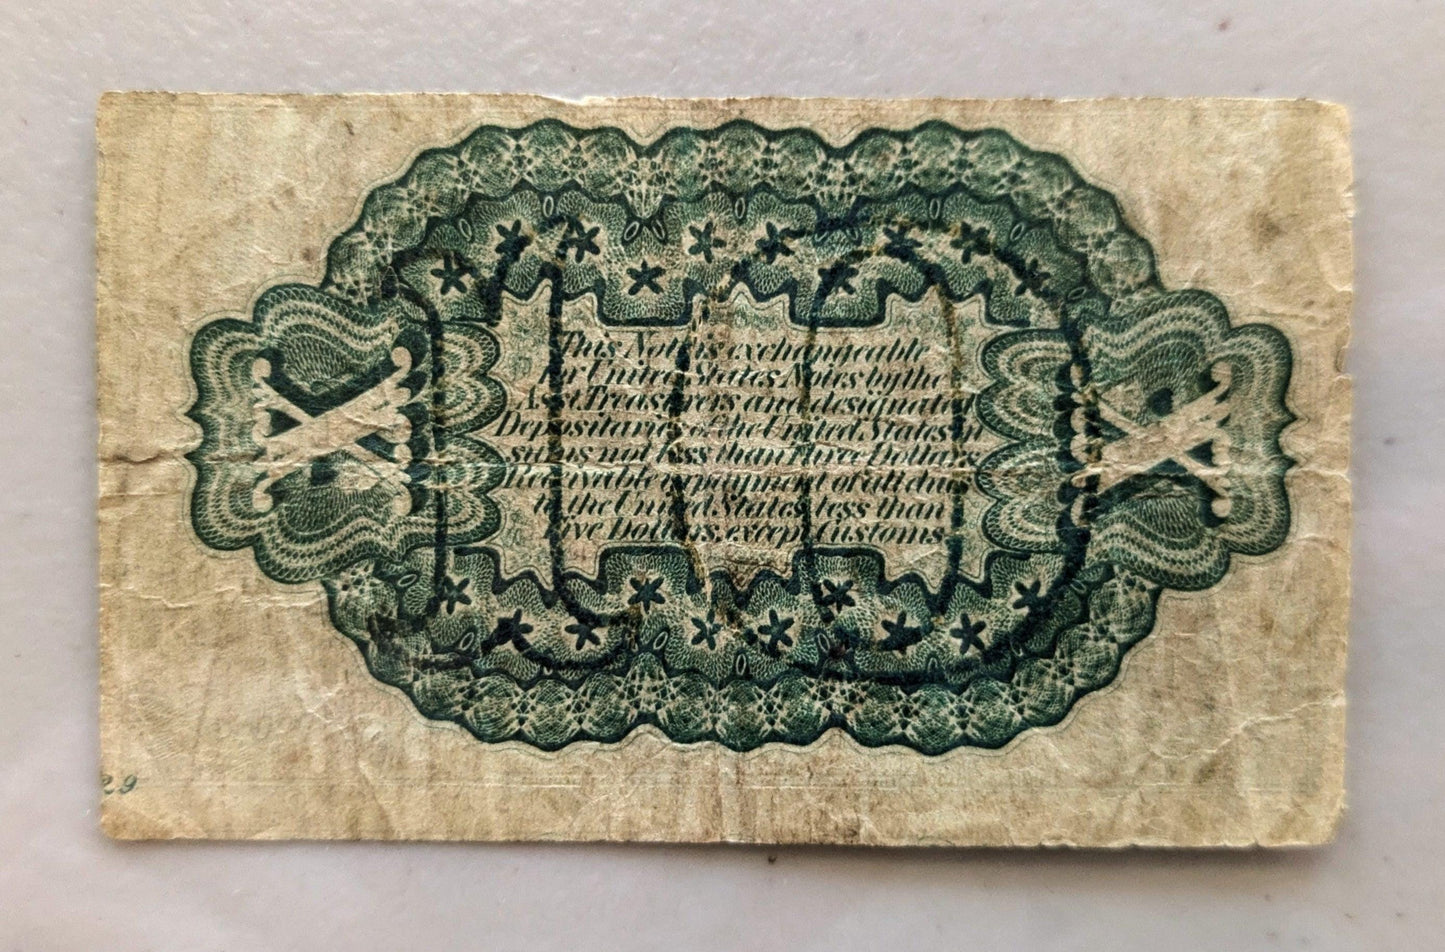 This Note is exchangeable
for United States Notes by the
Asst. Treasurers and designated
Depositaries of the United States in
sums not less than Three Dollars
Receivable in payment of all dues
to the United States, less than
Five Dollars, except Customs.
X
X
10
29